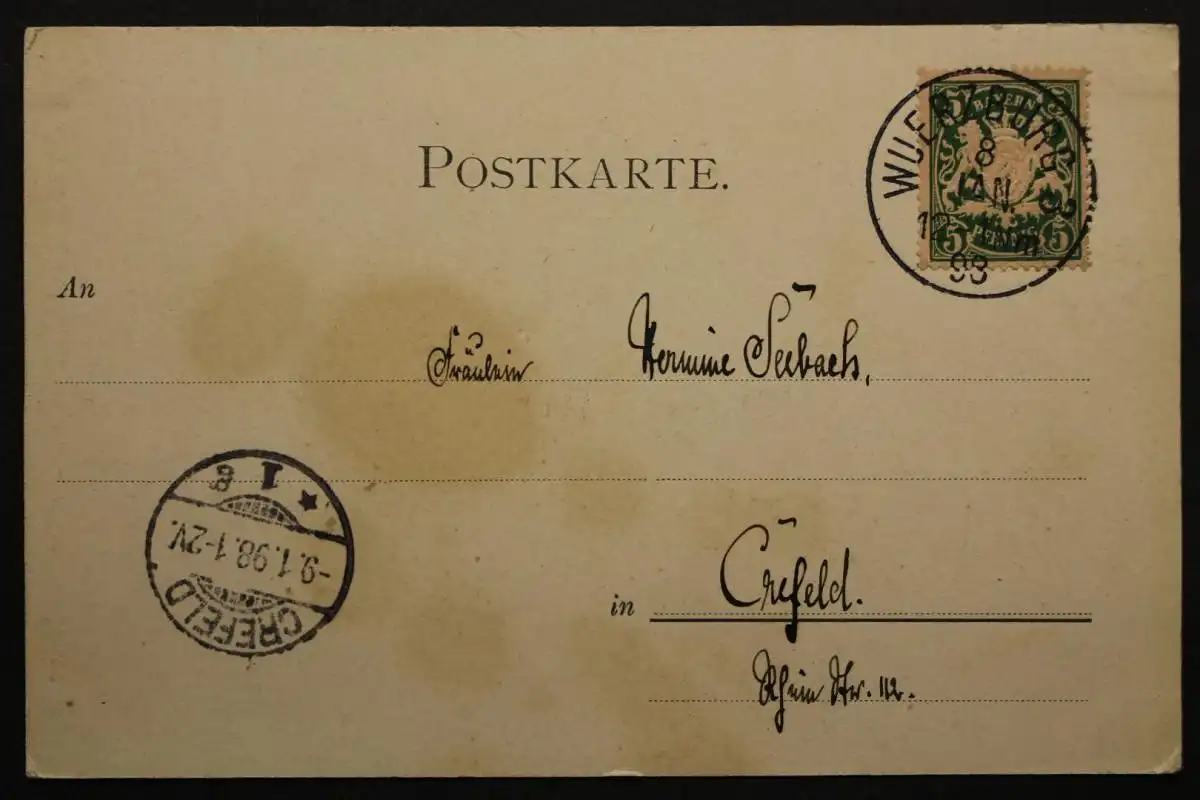 POSTKARTE.
WUERZBURG
8
JAN.
12
98
5 BAYERN 5
5 PFENNIG 5
An
Fräulein Hermine Seebach,
1 g
-9.1.98.1-2V.
CREFELD
in Crefeld.
Rhein Str. 112.